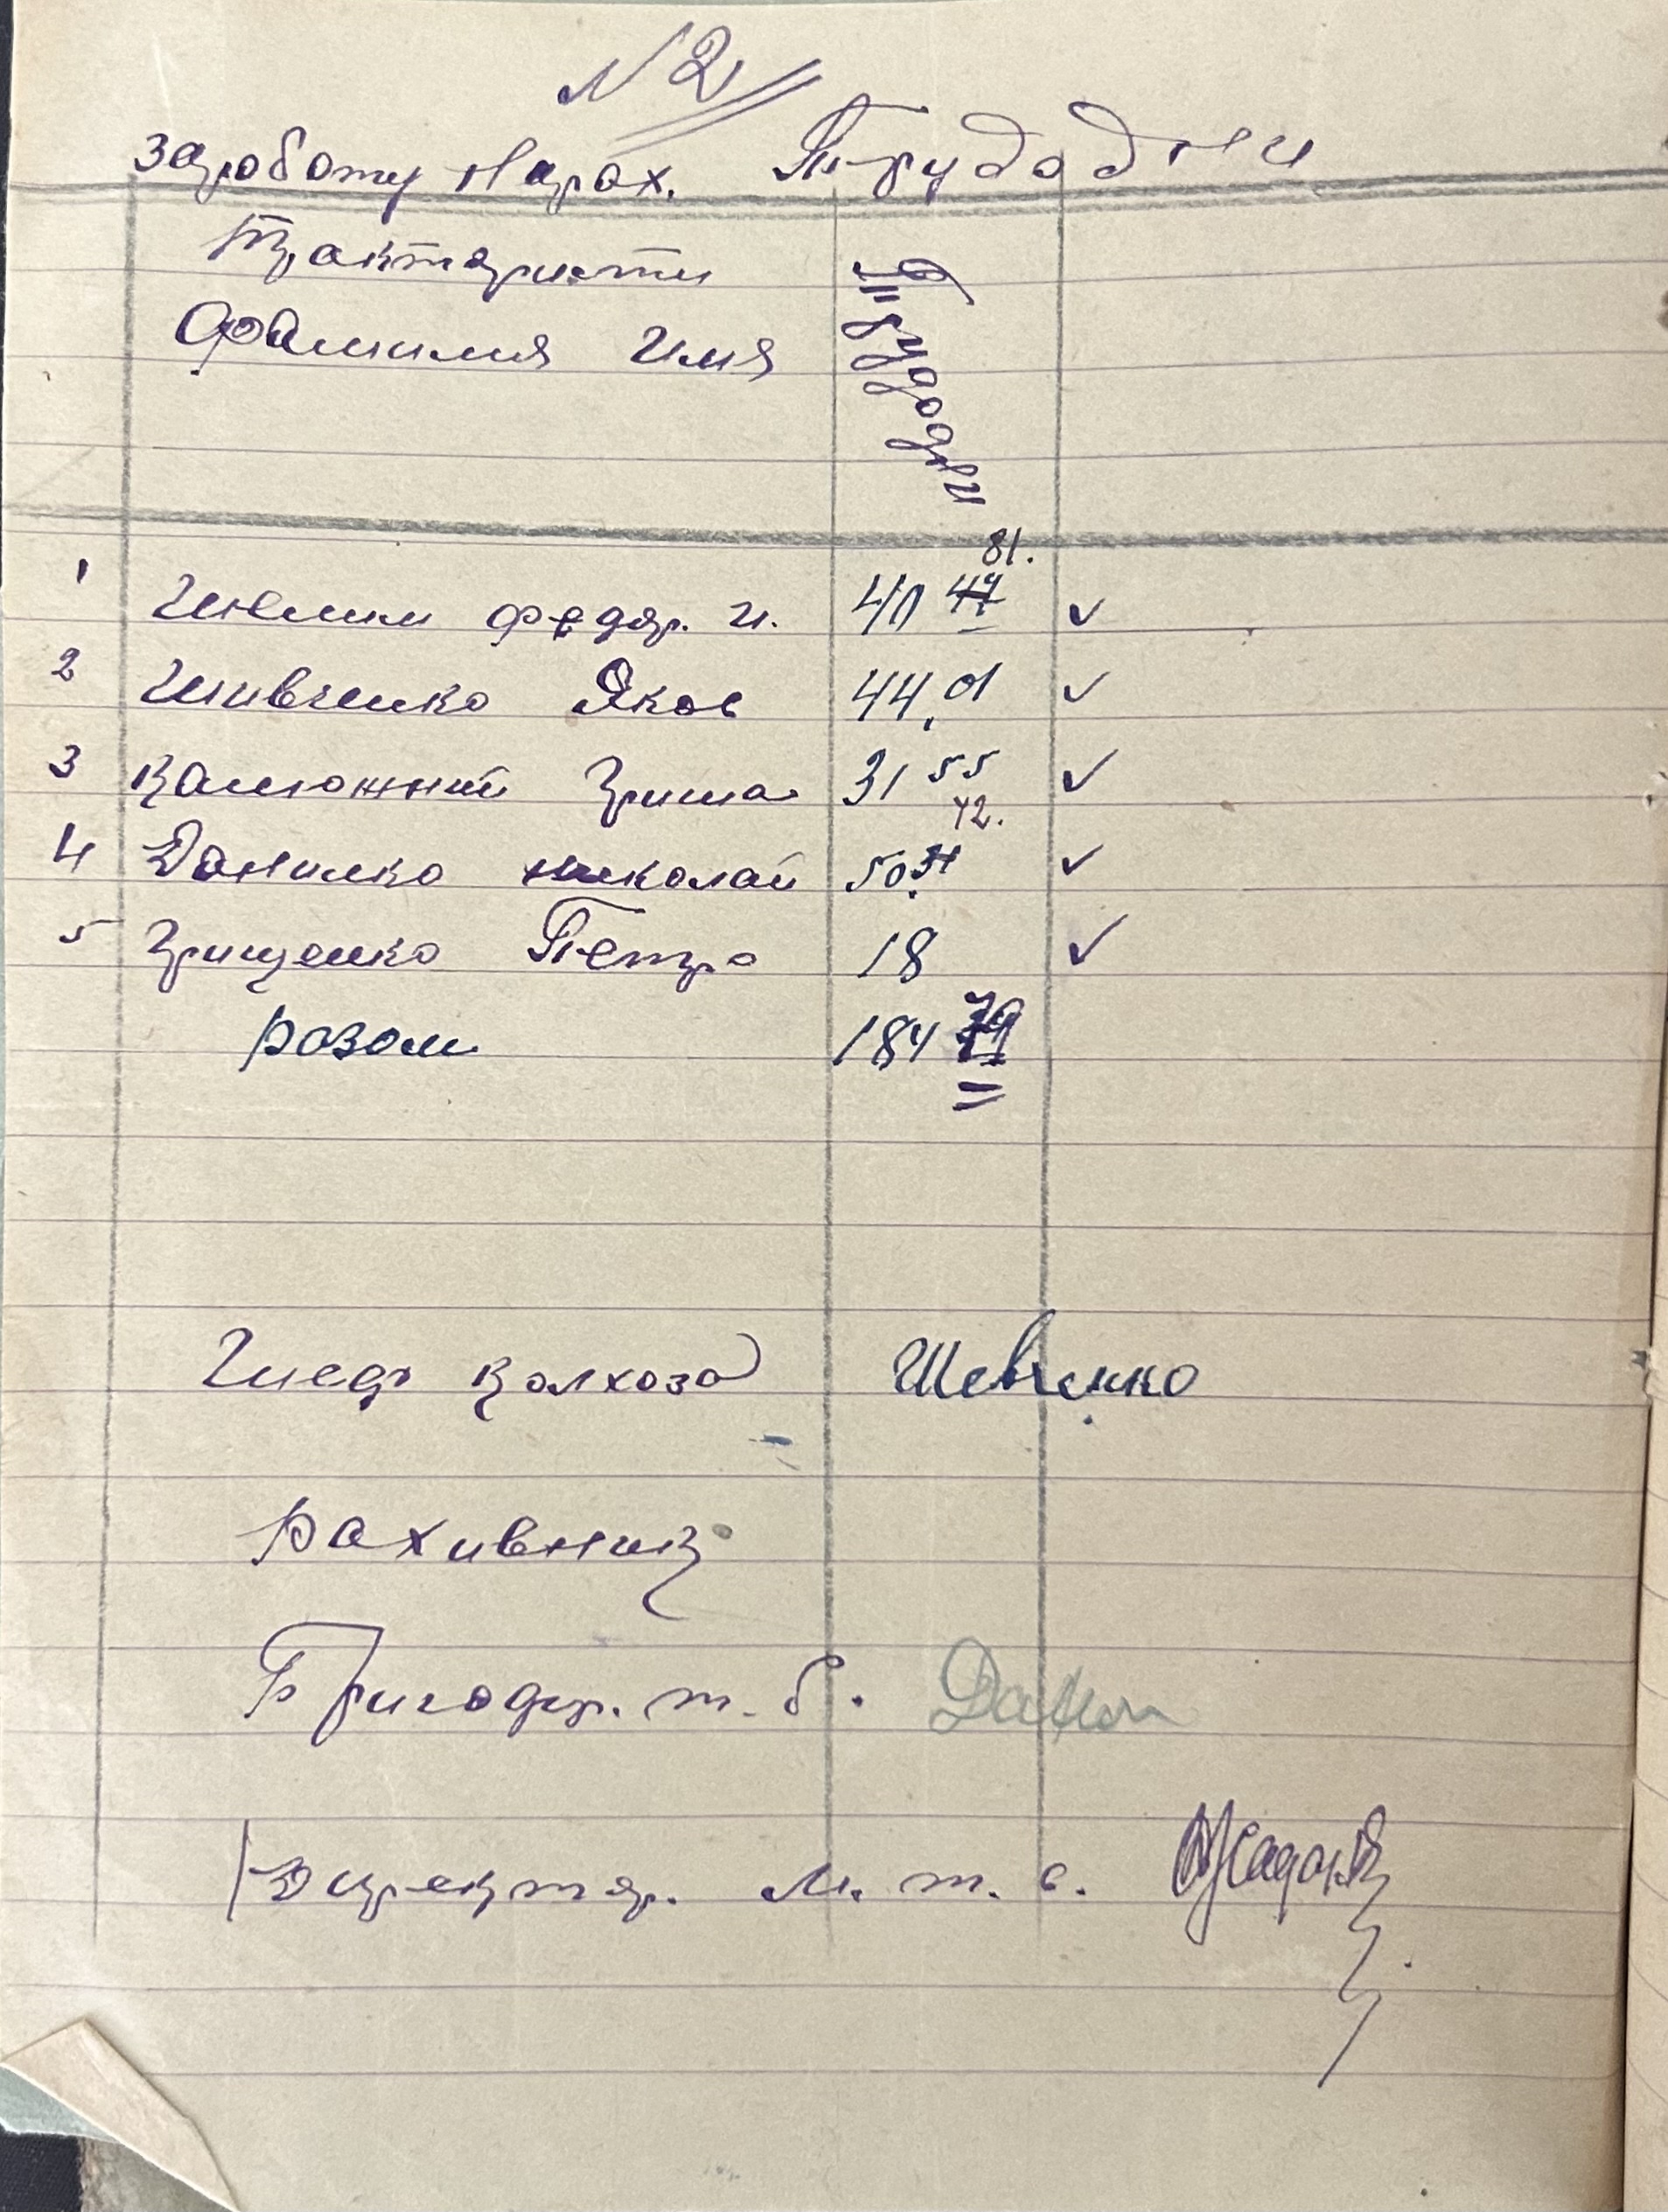 N 2
за роботу Нарах. Трудодни
Трактористи
Фамилия Имя Трудодни
81.
1 Шелии федор. и. 40 44 ✓
2 Шивченко Яков 44,01 ✓
3 Калюжний Гриша 31 55 ✓
42.
4 Данилко николай 50. ✓
5 Грищенко Петро 18 ✓
разом 184 79
колхоза Шевченко
рахивник
Бригадир. т. б.
Директор. М. т. с.